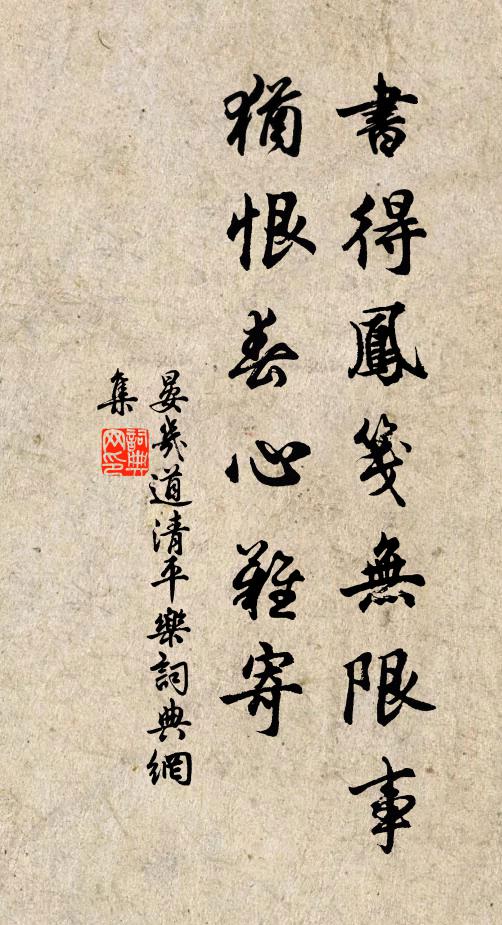 書得鳳箋無限事
猶恨春心難寄
晏幾道清平樂詞典網
集
詞典
网印